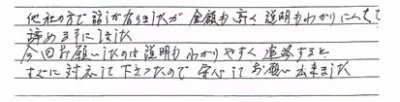 他社の方で話が有りましたが 金額も高く 説明もわかりにくくて
辞める事にしました
今回お願いしたのは説明もわかりやすく 連絡すると
すぐに対応して下さったので 安心してお願い出来ました